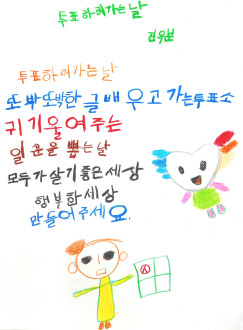 투표하러가는날
투표하러가는날
또빠또박한글배우고가는투표소
귀기울여주는
일꾼을뽑는날
모두가살기좋은세상
행복한세상
만들어주세요.